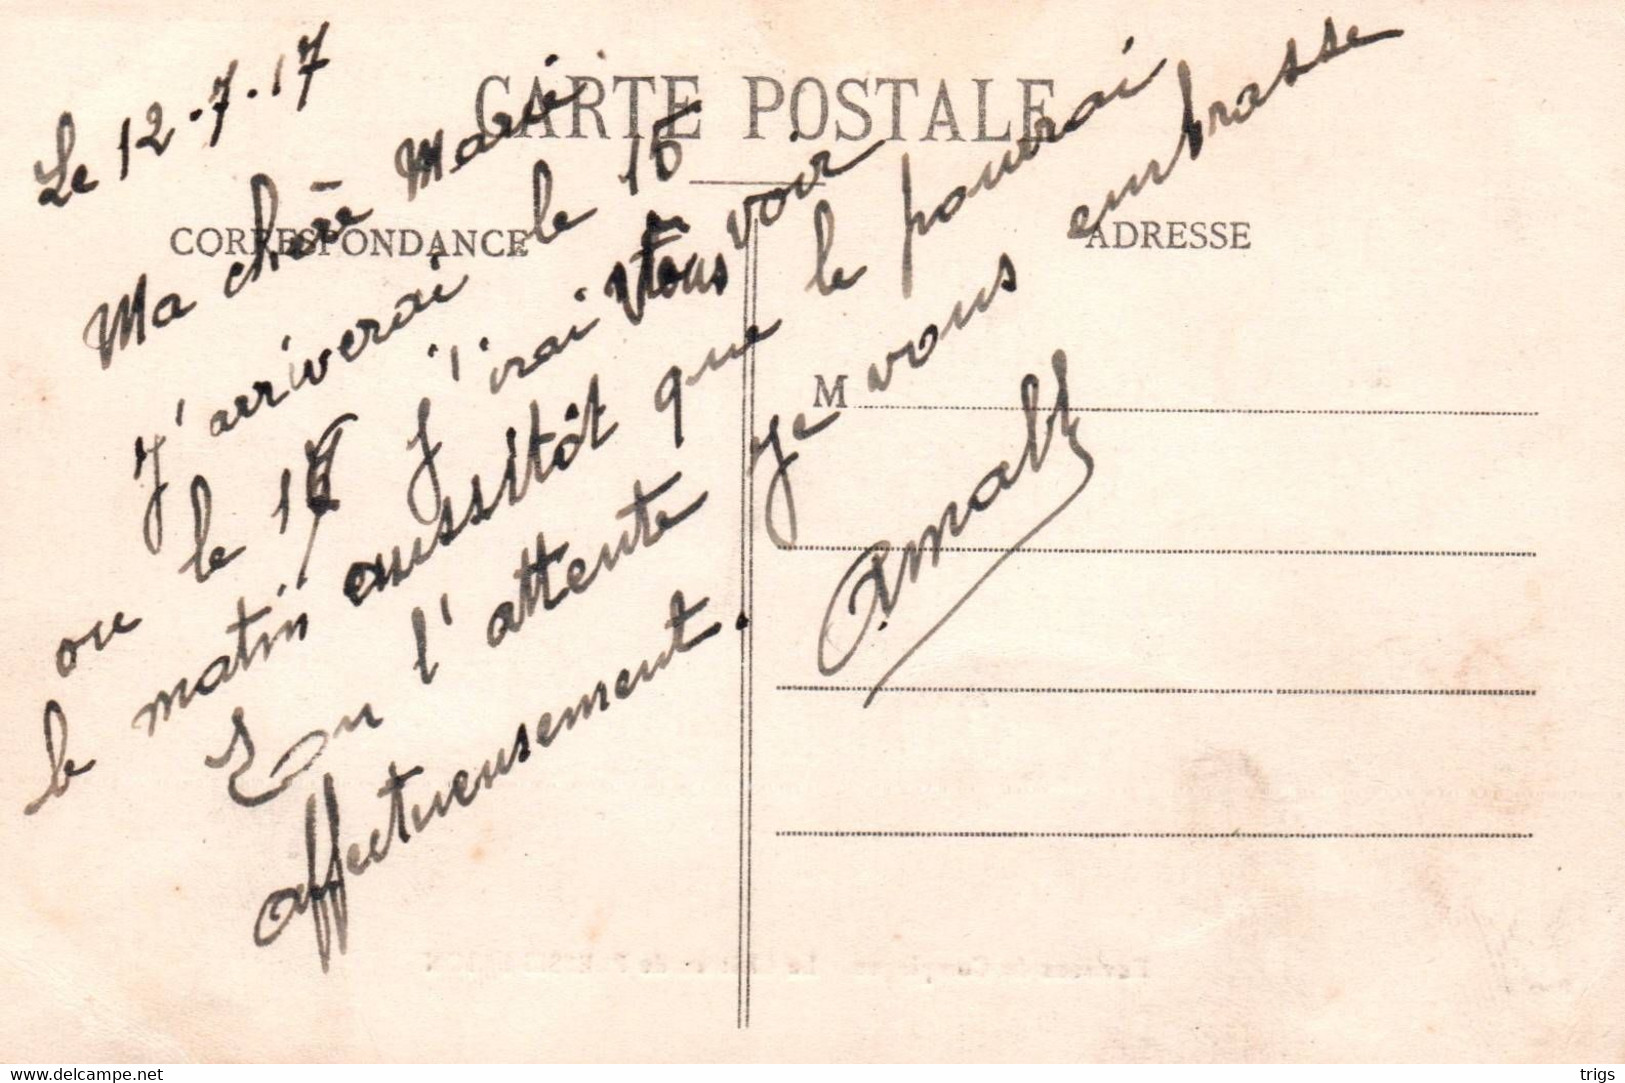 CARTE POSTALE
CORRESPONDANCE
ADRESSE
M
Le 12-7-17
Ma chère Marie
J'arriverai le 15
ou le 16 J'irai vous voir
le matin aussitôt que le pourrai
En l'attente Je vous embrasse
affectueusement.
Le Château de PIERREFONDS
www.delcampe.net
trigs